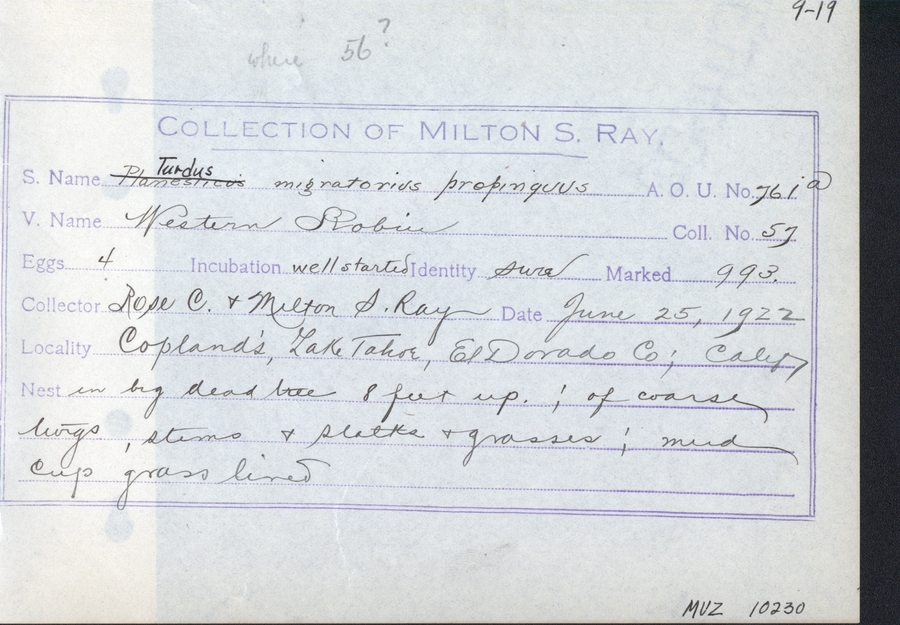 9-19
where 56?
COLLECTION OF MILTON S. RAY.
Turdus
S. Name Planesticus migratorius propinquus A. O. U. No. 761a
V. Name Western Robin Coll. No. 57
Eggs 4 Incubation well started Identity sure Marked 993.
Collector Rose C. & Milton S. Ray Date June 25, 1922
Locality Copland's, Lake Tahoe, El Dorado Co; Calif
Nest in big dead tree 8 feet up. ; of coarse
twigs, stems & stalks & grasses; mud
cup grass lined
MVZ 10230